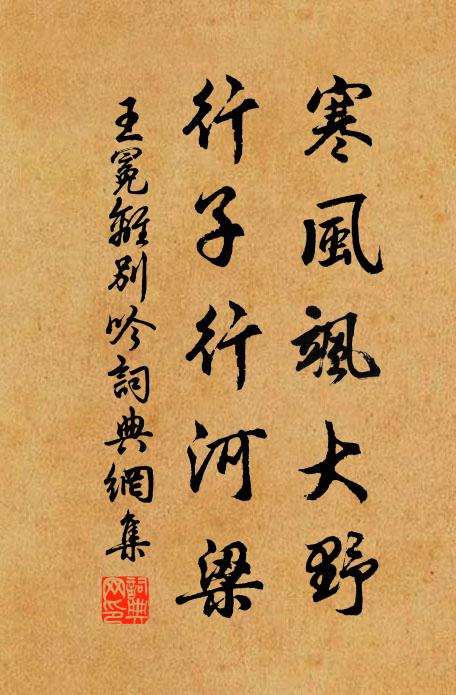 寒風颯大野
行子行河梁
王冕離別吟詞典網集
詞典網印